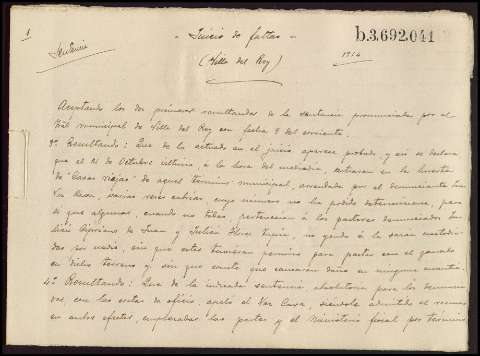 1
- Juicio de faltas -
b.3.692.041
Sentencia
(Villa del Rey)
1914
Aceptando los dos primeros resultandos de la sentencia pronunciada por el
Tbal municipal de Villa del Rey con fecha 9 del corriente.
3º Resultando: Que de lo actuado en el juicio aparece probado, y así se declara
que el 21 de Octubre último, a la hora del mediodía, entraron en la huerta
de "Casas viejas" de aquel término municipal, arrendada por el denunciante
varias reses cabrías, cuyo número no ha podido determinarse, pero
sí que algunas, cuando no todas, pertenecían á los pastores denunciados
Cipriano de Juan y Julián Flores
sin que estos tuvieran permiso para pastar con el ganado
en dicho terreno y sin que conste que causaran daño en ninguna cuantía.
4º Resultando: Que de la indicada sentencia absolutoria para los denuncia
dos, con las costas de oficio, apeló el siéndole admitido el recurso
en ambos efectos, emplazadas las partes y el Ministerio fiscal por término